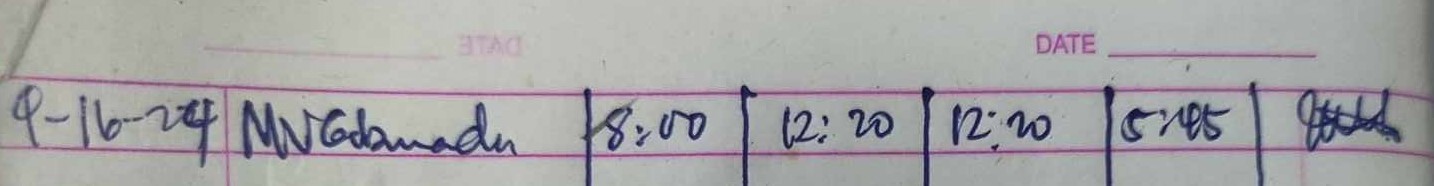 DATE
9-16-24 MVGdamadu 8:00 12:20 12:20 5:05